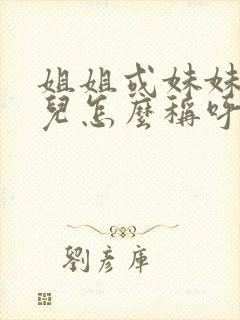 姐姐或妹妹
兒怎麼稱呼
劉彥庫